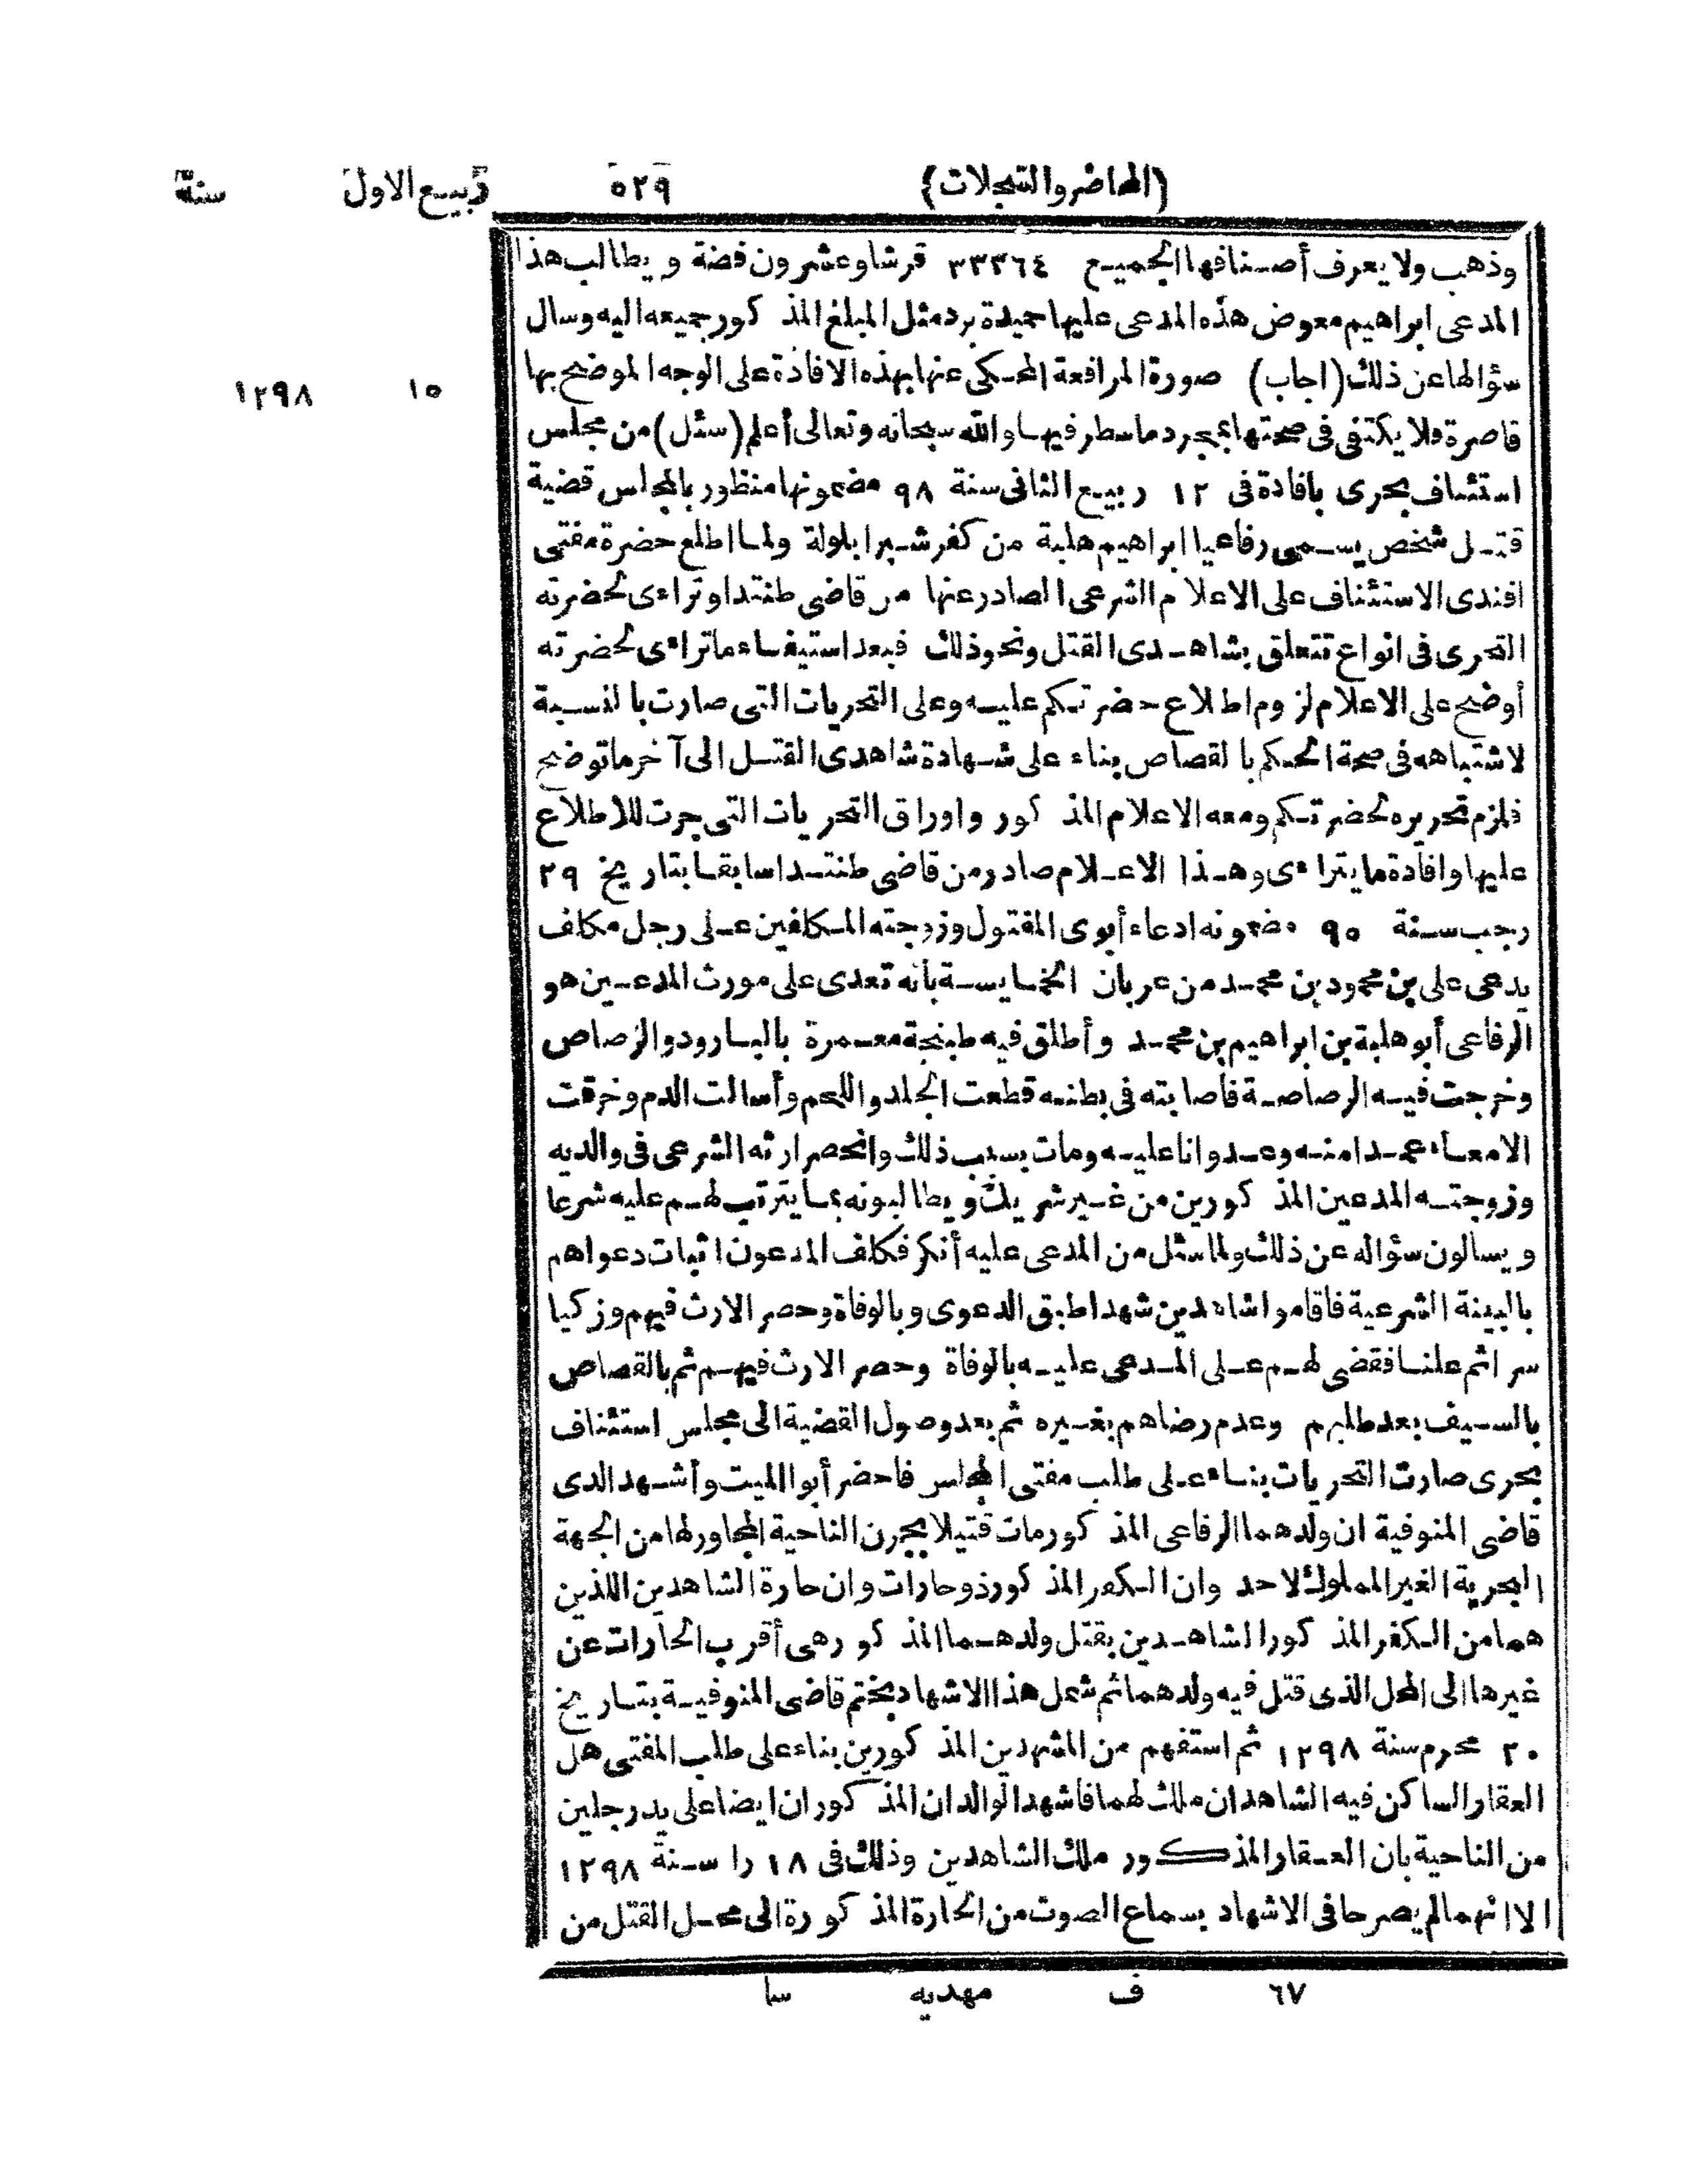 (المحاضر والسجلات) ٥٢٩ ربيع الاول سنة
وذهب ولا يعرف أصنافها الجميع ٣٣٣٦٤ قرشا وعشرون فضة ويطالب هذا
المدعى ابراهيم معوض هذه المدعى عليها حميدة برد مثل المبلغ المذكور جميعه اليه وسال
سؤالها عن ذلك (اجاب) صورة المرافعة المحكى عنها بهذه الافادة على الوجه الموضح بها
١٥ ١٢٩٨
قاصرة ولا يكتفى فى صحتها بمجرد ما سطر فيها والله سبحانه وتعالى أعلم (سئل) من مجلس
استئناف بحرى بافادة فى ١٢ ربيع الثانى سنة ٩٨ مضمونها منظور بالمجلس قضية
قتل شخص يسمى رفاعيا ابراهيم هلبة من كفر شبرا بلولة ولما اطلع حضرة مفتى
افندى الاستئناف على الاعلام الشرعى الصادر عنها من قاضى طنتدا وتراءى لحضرته
التحرى فى انواع تتعلق بشاهدى القتل ونحو ذلك فبعد استيفاء ما تراءى لحضرته
أوضح على الاعلام لزوم اطلاع حضرتكم عليه وعلى التحريات التى صارت بالنسبة
لاشتباهه فى صحة الحكم بالقصاص بناء على شهادة شاهدى القتل الى آخر ما توضح
فلزم تحريره لحضرتكم ومعه الاعلام المذكور واوراق التحريات التى جرت للاطلاع
عليها وافادة ما يتراءى وهذا الاعلام صادر من قاضى طنتدا سابقا بتاريخ ٢٩
رجب سنة ٩٥ مضمونه ادعاء أبوى المقتول وزوجته المكلفين على رجل مكلف
يدعى على بن محمود بن محمد من عربان الخمايسة بأنه تعدى على مورث المدعين هو
الرفاعى أبو هلبة بن ابراهيم بن محمد وأطلق فيه طبنجة معمرة بالبارود والرصاص
وخرجت فيه الرصاصة فأصابته فى بطنه قطعت الجلد واللحم وأسالت الدم وخرقت
الامعاء عمدا منه وعدوانا عليه ومات بسبب ذلك وانحصر ارثه الشرعى فى والديه
وزوجته المدعين المذكورين من غير شريك ويطالبونه بما يترتب لهم عليه شرعا
ويسالون سؤاله عن ذلك ولما سئل من المدعى عليه أنكر فكلف المدعون اثبات دعواهم
بالبينة الشرعية فاقاموا شاهدين شهدا طبق الدعوى وبالوفاة وحصر الارث فيهم وزكيا
سرا ثم علنا فقضى لهم على المدعى عليه بالوفاة وحصر الارث فيهم ثم بالقصاص
بالسيف بعد طلبهم وعدم رضاهم بغيره ثم بعد وصول القضية الى مجلس استئناف
بحرى صارت التحريات بناء على طلب مفتى المجلس فاحضر أبوا الميت وأشهد الدى
قاضى المنوفية ان ولدهما الرفاعى المذكور مات قتيلا بجرن الناحية المجاور لها من الجهة
البحرية الغير المملوك لاحد وان الكفر المذكور ذو حارات وان حارة الشاهدين اللذين
هما من الكفر المذكور الشاهدين بقتل ولدهما المذكور هى أقرب الحارات عن
غيرها الى المحل الذى قتل فيه ولدهما ثم شمل هذا الاشهاد بختم قاضى المنوفية بتاريخ
٢٠ محرم سنة ١٢٩٨ ثم استفهم من المشهدين المذكورين بناء على طلب المفتى هل
العقار الساكن فيه الشاهدان ملك لهما فأشهد الوالدان المذكوران ايضا على يد رجلين
من الناحية بان العقار المذكور ملك الشاهدين وذلك فى ١٨ را سنة ١٢٩٨
الا انهما لم يصرحا فى الاشهاد بسماع الصوت من الحارة المذكورة الى محل القتل من
٦٧ ف مهديه سا